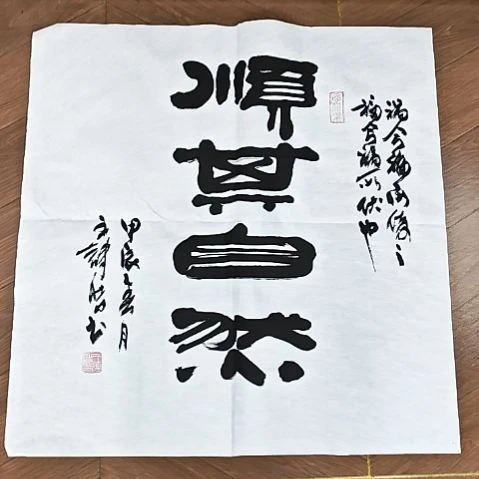 禍兮福所倚
福兮禍所伏
順其自然
甲辰春月
書